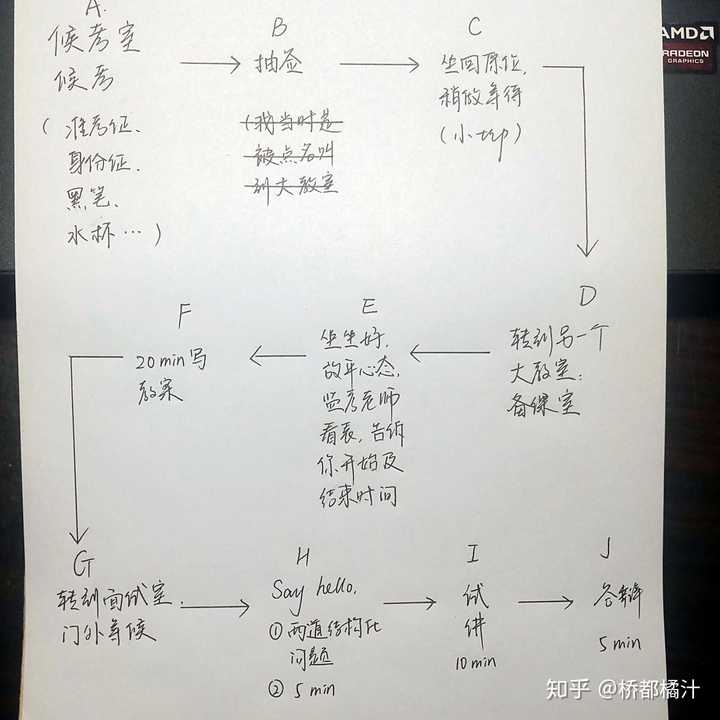 A.
候考室
候考
(准考证、
身份证、
黑笔、
水杯…)
B
抽签
(我当时是
被点名叫
到大教室
C
坐回原位，
稍做等待
(小tip)
D
转到另一个
大教室：
备课室
E
坐坐好，
放平心态，
监考老师
看表，告诉
你开始及
结束时间
F
20min写
教案
G
转到面试室
门外等候
H
Say hello.
① 两道结构化
问题
② 5 min
I
试
讲
10min
J
答辩
5 min
AMD
RADEON
GRAPHICS
知乎 @桥都橘汁